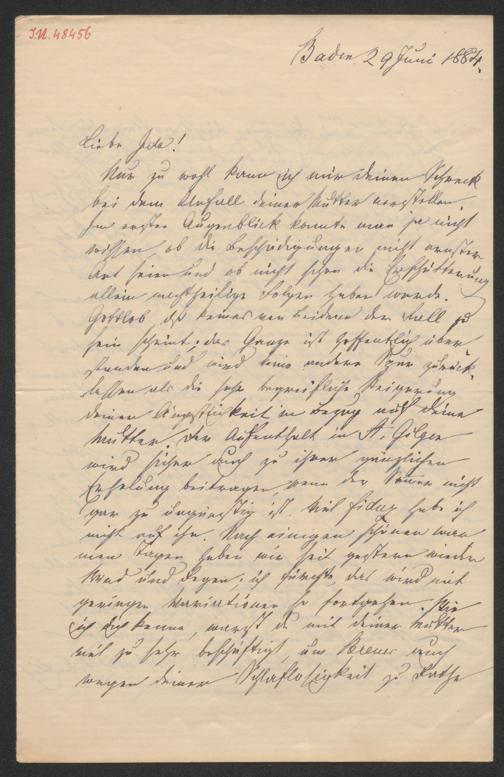 I.N. 48456
Baden 29 Juni 1884.
Liebe Ida!
Nur zu wohl kann ich mir deinen Schreck
bei dem Unfall deiner Mutter vorstellen.
Im ersten Augenblick konnte man ja nicht
wissen, ob die Beschädigungen nicht ernster
Art seien und ob nicht schon die Erschütterung
allein nachtheilige Folgen haben werde.
Gottlob, daß keines von beiden der Fall zu
sein scheint; das Ganze ist hoffentlich über
standen und wird keine andere Spur zurück
lassen als die sehr begreifliche Steigerung
deiner Ängstlichkeit in Bezug auf deine
Mutter. Der Aufenthalt in St. Gilgen
wird sicher auch zu ihrer gänzlichen
Erholung beitragen wenn der Sommer nicht
gar zu ungünstig ist. Viel fiduz habe ich
nicht auf ihn. Nach einigen schönen war
men Tagen haben wir seit gestern wieder
Wind und Regen; ich fürchte, das wird mit
geringen Variationen so fortgehen. Wie
ich dich kenne warst du mit deiner Mutter
viel zu sehr beschäftigt, um Breuer auch
wegen deiner Schlaflosigkeit zu Rathe